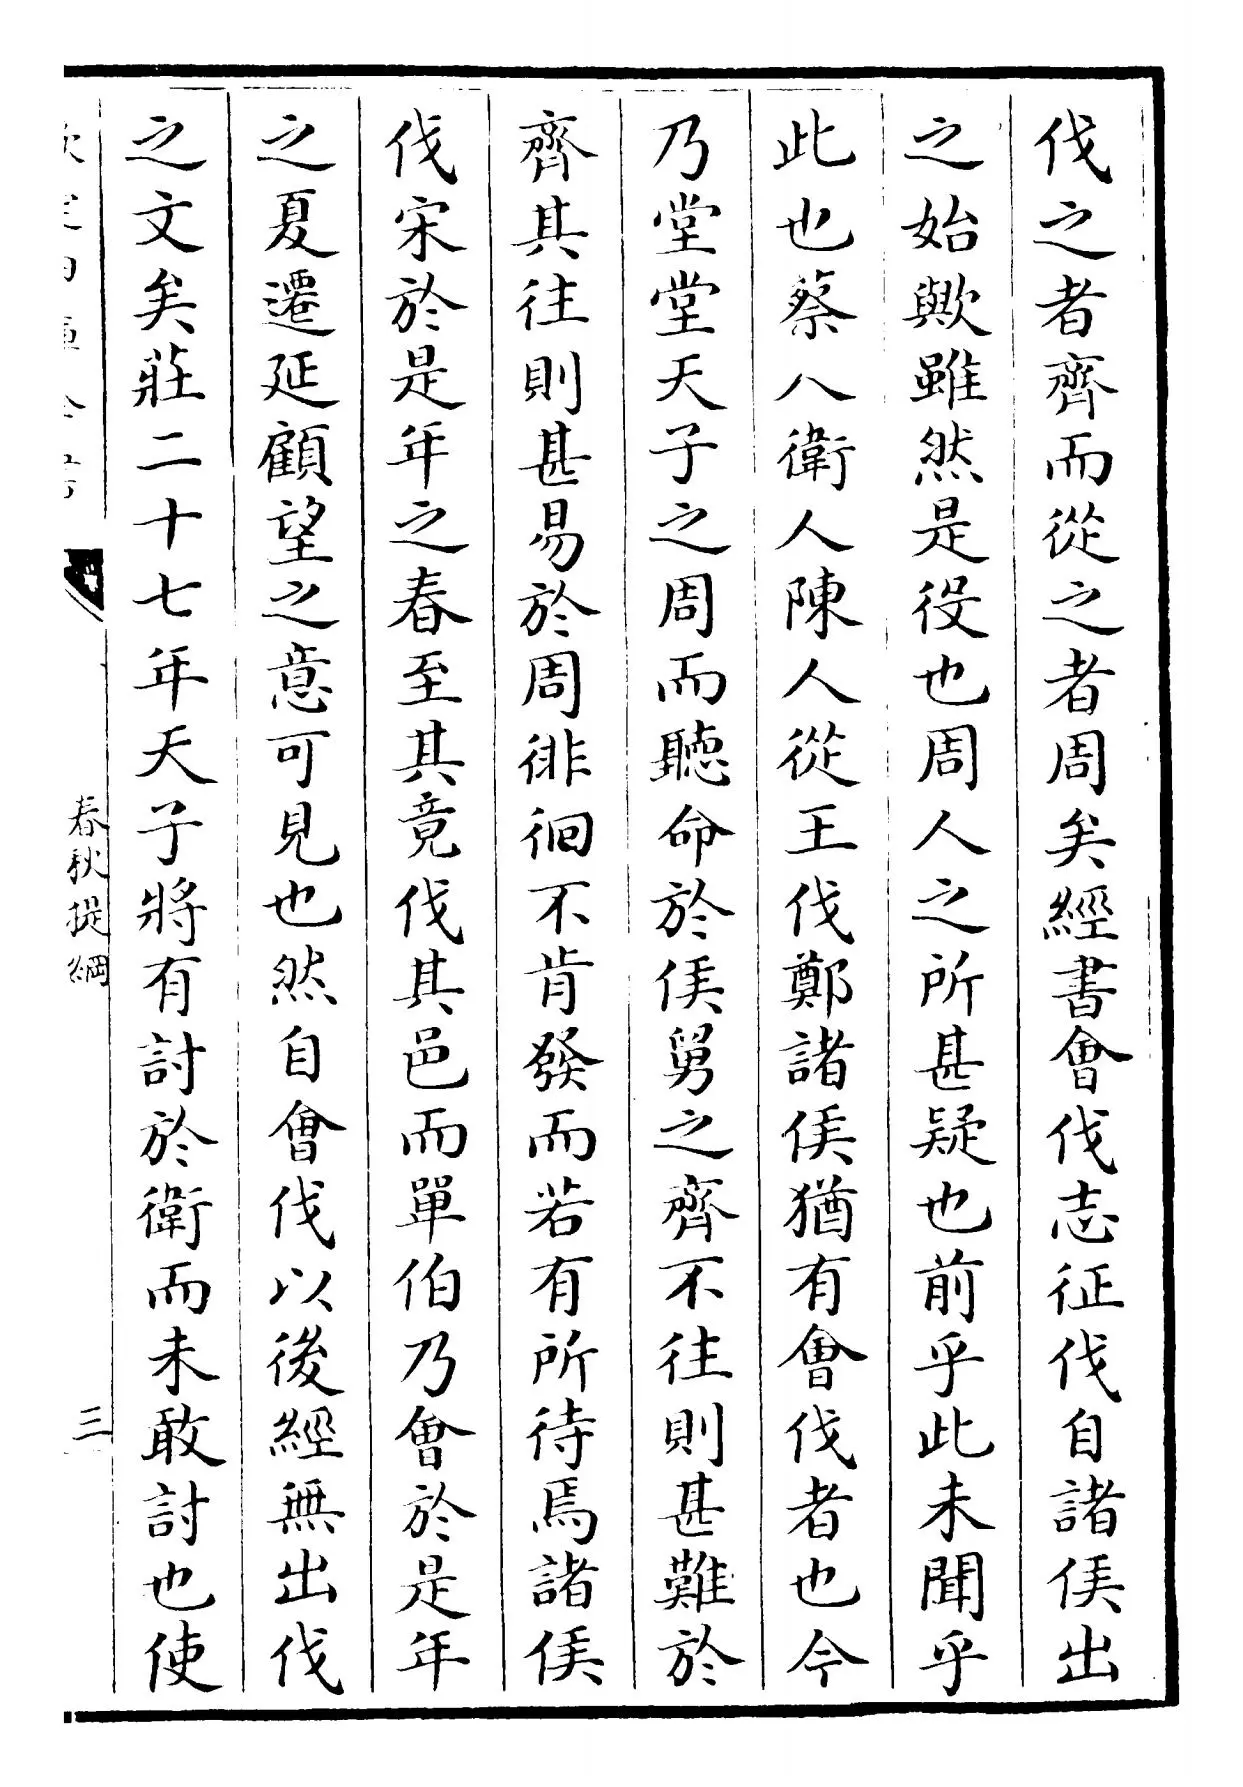 伐之者齊而從之者周矣經書會伐志征伐自諸侯出
之始歟雖然是役也周人之所甚疑也前乎此未聞乎
此也蔡人衛人陳人從王伐鄭諸侯猶有會伐者也今
乃堂堂天子之周而聽命於侯舅之齊不往則甚難於
齊其往則甚易於周徘徊不肯發而若有所待焉諸侯
伐宋於是年之春至其竟伐其邑而單伯乃會於是年
之夏遷延顧望之意可見也然自會伐以後經無出伐
之文矣莊二十七年天子將有討於衛而未敢討也使
春秋提綱
三